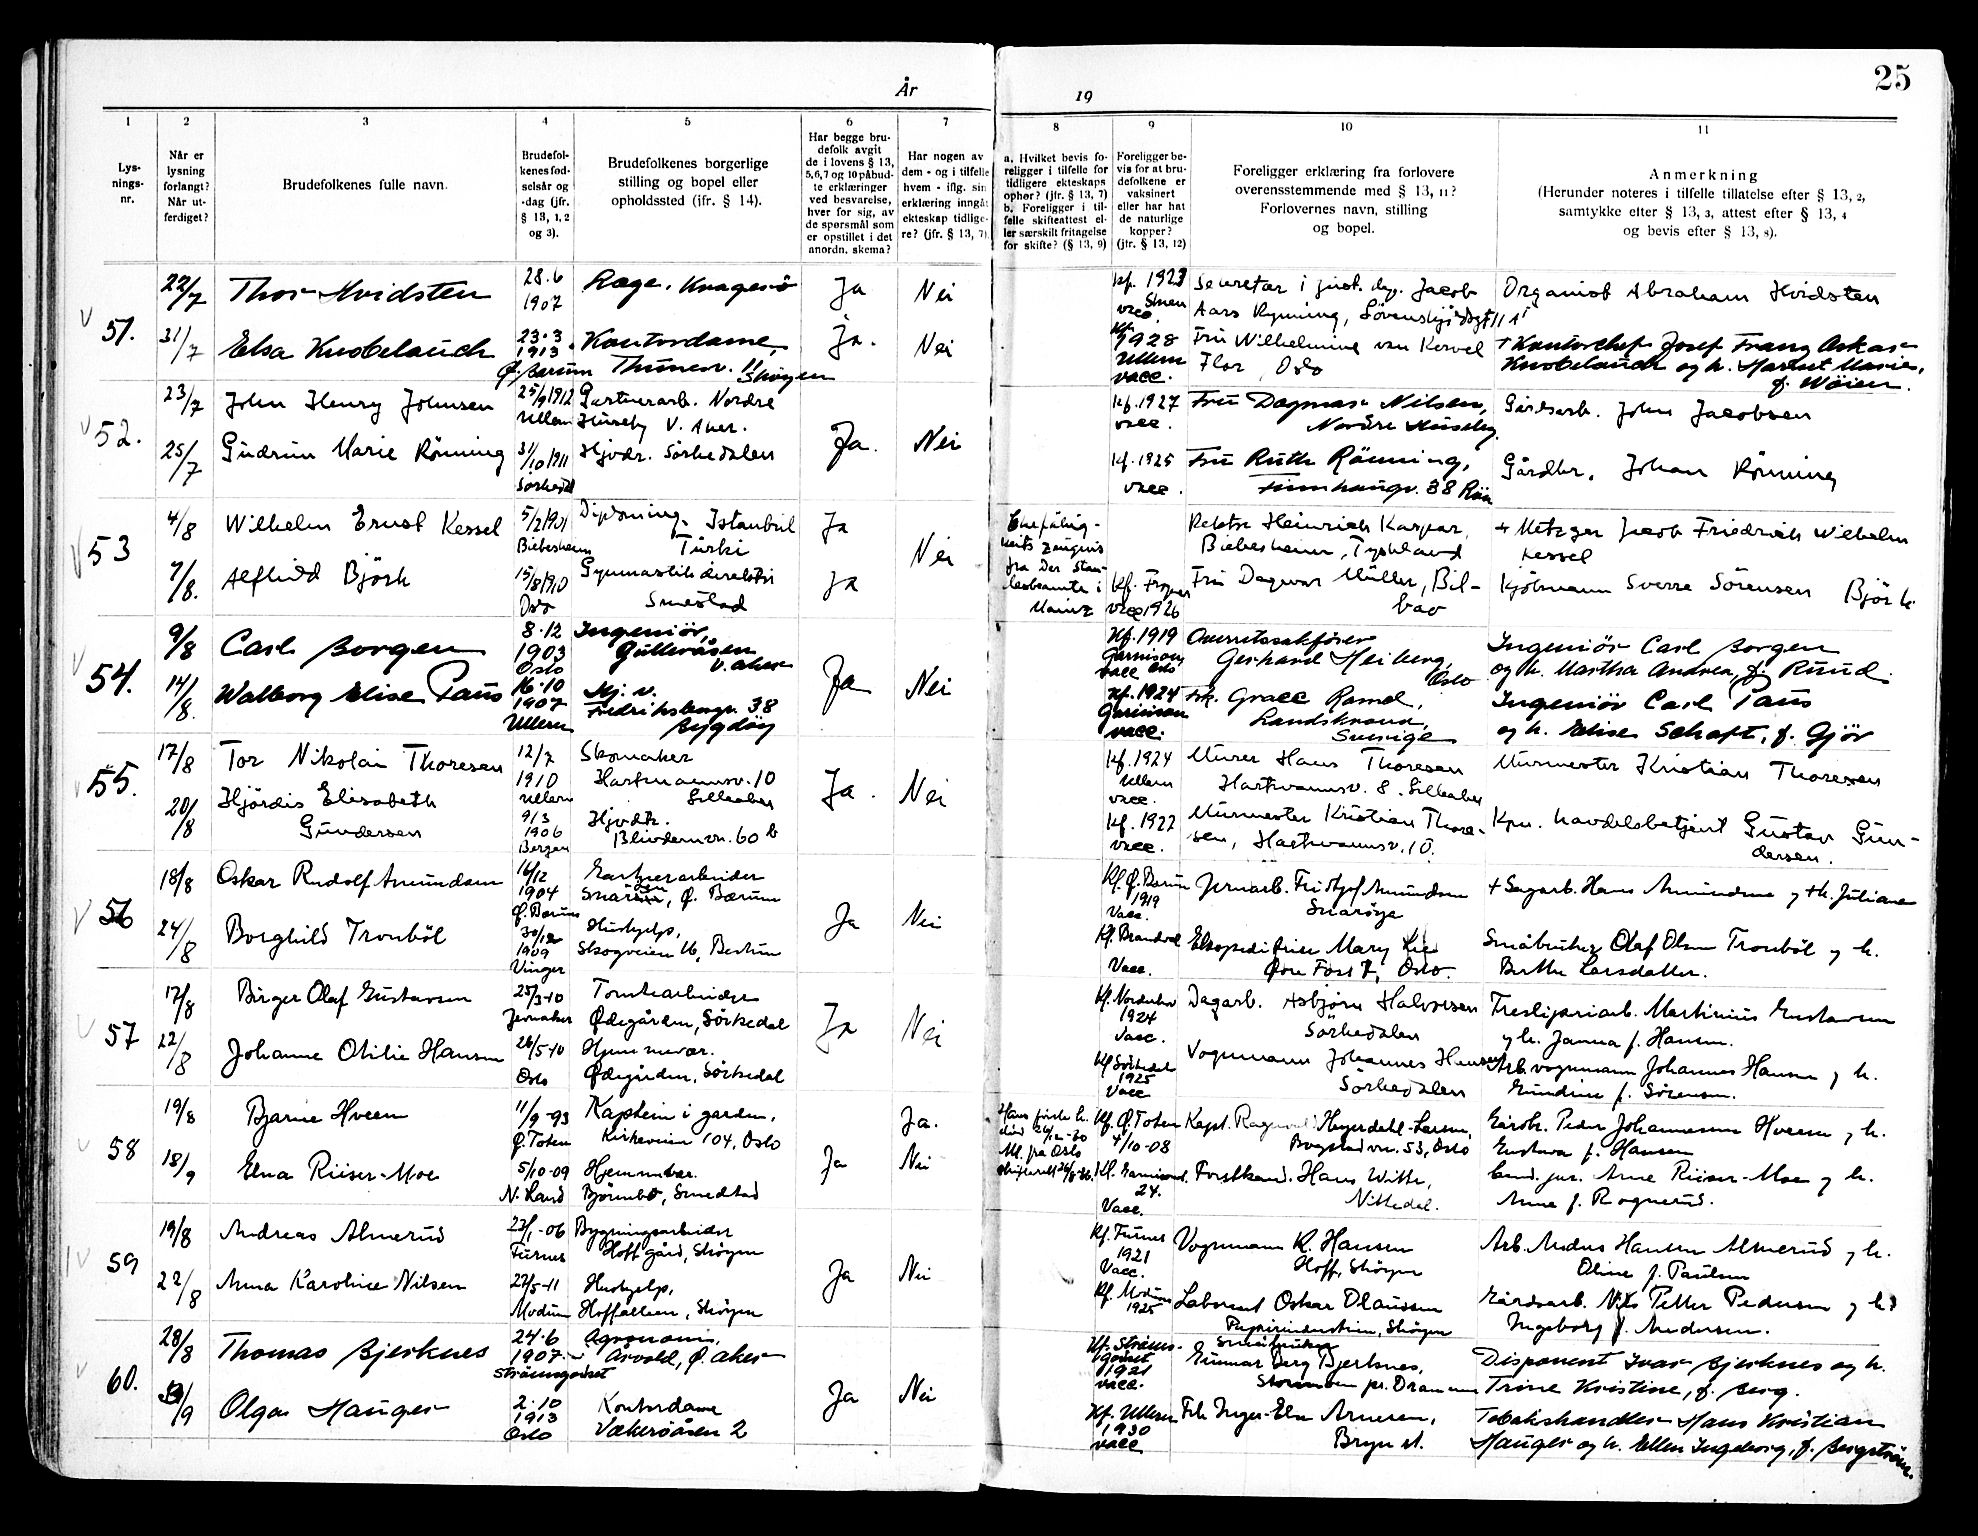 År
19
25
1
2
3
4
5
6
7
8
9
10
11
Lys-
nings-
nr.
Når er
lysning
forlangt?
Når ut-
ferdiget?
Brudefolkenes fulle navn.
Brudefol-
kenes fød-
selsår og
-dag (jfr.
§ 13, 1, 2
og 3).
Brudefolkenes borgerlige
stilling og bopel eller
opholdssted (ifr. § 14).
Har begge bru-
defolk avgit
de i lovens § 13,
5,6,7 og 10 påbud-
te erklæringer
ved besvarelse,
hver for sig, av
de spørsmål som
er opstillet i det
anordn. skema?
Har nogen av
dem - og i tilfelle
hvem - iflg. sin
erklæring inngåt
ekteskap tidlige-
re? (jfr. § 13, 7).
a. Hvilket bevis fo-
religger i tilfelle for
tidligere ekteskaps
ophør? (jfr. § 13, 7)
b. Foreligger i til-
felle skifteattest el-
ler særskilt fritagelse
for skifte? (§ 13, 9)
Foreligger be-
vis for at bru-
defolkene er
vaksinert
eller har hat
de naturlige
kopper?
(jtr. § 13, 12)
Foreligger erklæring fra forlovere
overensstemmende med § 13, 11?
Forlovernes navn, stilling
og bopel.
Anmerkning
(Herunder noteres i tilfelle tillatelse efter § 13, 2,
samtykke efter § 13, 3, attest efter § 13, 4
og bevis efter § 13, 8).
51.
22/7
Thor Hvidsten
28.6
1907
Kragerö
Ja
Nei
kf. 1923
Secretær i just. dep. Jacob
Aars Rynning,
Organist Abraham Hvidsten
31/7
Elsa Knobelauch
23.3
1913
Ö. Bærum
Kontordame,
Thunesv. 11
Skøyen
Ja.
Nei
1928
Ullern
vacc.
Fru Wilhelmine van Kervel
Flor, Oslo
+ Kontorchef Josef Franz Oskar
Knobelauch og h. Harriet Marie,
f. Wöien.
52.
23/7
John Henry Johnsen
25/9 1912
Ullern
Gartnerarb. Nordre
Huseby V. Aker.
Ja.
Nei
kf. 1927
vacc.
Fru Dagmar Nilsen,
Nordre Huseby.
Gårdsarb. John Jacobsen
25/7
Gudrun Marie Rönning
31/10 1911
Sørkedal
Hjvdr. Sørkedalen
kf. 1925
vacc.
Fru Ruth Rönning,
38
Gårdbr. Johan Rönning
53
4/8
Wilhelm Ernst Kessel
5/2 1901
Biebesheim
Diploming. Istanbul
Türki
Ja
Nei
Ehefähig-
keits zeugnis
fra Der Stan-
desbeamte i
Mainz
Rektor Heinrich Kaspar,
Biebesheim, Tyskland
+ Metzger Jacob Friedrich Wilhelm
Kessel
7/8.
Alfhild Björk
15/8 1910
Oslo
Gymnastikdirektör
Smestad
Ja
kf. Frogner
vacc 1926
Fru Dagmar Müller, Bil-
bao
Kjöbmann Sverre Sörensen Björk
54.
9/8
Carl Borgen
8.12
1903
Oslo
Ingeniör,
Gulleråsen
V. Aker
Ja
Nei
Kf. 1919
Garnison,
vacc Oslo
Overretssakfører
Gerhard Heiberg,
Oslo
Ingeniör Carl Borgen
og h. Martha Andrea, f. Ruud.
14/8.
Walborg Elise Paus
16.10
1907
Ullern
Hj. v.
Fredriksborgv. 38
Bygdöy
Kf. 1924
Garnison
vacc.
Frk. Grace Ramel,
Landskrona,
Sverige
Ingeniör Carl Paus
og h. Elise Schaft, f. Gjör
55.
17/8
Tor Nikolai Thoresen
12/7
1910
Ullern
Skomaker
Hartmannsv. 10
Lilleaker
Ja.
Nei
kf. 1924
Ullern
vacc.
Murer Hans Thoresen
Hartmannsv. 8. Lilleaker
Murmester Kristian Thoresen
20/8
Hjördis Elisabeth
Gundersen
9/3
1906
Bergen
Hjvdtr.
Blindernvn. 60 b
kf. 1922
vacc.
Murmester Kristian Thore-
sen, Hartmannsv. 10.
handelsbetjent Gustav Gun-
dersen.
56
18/8
Oskar Rudolf Amundsen
16/12
1904
Ø. Bærum
Gartnerarbeider
Snarøen, Ø. Bærum
Ja
Nei
Kf. Ø. Bærum
1919
Vacc.
Jernarb. Fridtjof Amundsen
Snarøya
+ Sagarb. Hans Amundsen og +h. Juliane
24/8
Borghild Tronböl
30/12
1909
Vinger
Hushjelp,
Skogveien 16, Bestum
Kf. Brandval
Vacc.
Ekspeditrise Mary Lie
Oslo.
Småbruker Olaf Olsen Tronböl og h.
Berthe Larsdatter.
57
17/8
Birger Olaf Gustavsen
25/3-10
Jevnaker
Tomtearbeider
Ødegården, Sörkedal
Ja
Nei
Kf. Norderhov
1924
Vacc.
Dagarb. Asbjørn Halvorsen
Sörkedalen
Tresliperiarb. Martinius Gustavsen
og h. Janna f. Hansen.
22/8
Johanne Otilie Hansen
26/5-10
Oslo
Hjemmevær.
Ødegården, Sörkedal
Kf Sörkedal
1925
Vacc
Vognmann Johannes Hansen
Sörkedalen
Arb. vognmann Johannes Hansen og h.
Gundine f. Sörensen.
58
19/8
Bjarne Hveem
11/9-93
Ø. Toten
Kaptein i garden,
Kirkeveien 104, Oslo
Ja
Ja.
Hans første h.
død 26/12-30
Att. fra Oslo
Kf. Ø. Toten
4/10-08
Kapt. Heyerdahl-Larsen,
Bogstadvn. 53, Oslo
Gårdb. Peder Johannesen Hveem og h.
Gustava f. Hansen
18/9
Elna Riiser-Moe
5/10-09
N. Land
Hjemmevær.
Smestad
Nei
Kf. Garnison
24.
Vacc.
Forstkand. Hans Witth,
Nittedal.
Cand. jur. Arne Riiser-Moe og h.
Anne f. Rognerud.
59
19/8
Andreas Almerud
23/1-06
Furnes
Bygningsarbeider
Hoff gård, Skøyen
Ja
Nei
Kf. Furnes
1921
Vacc.
Vognmann K. Hansen
Hoff, Skøyen
Arb. Andreas Hansen Almerud og h.
Oline f. Paulsen
22/8
Anna Karoline Nilsen
27/5-11
Modum
Hushjelp,
Hoffalleen, Skøyen
Kf. Modum
1925
Laborant Oskar Olaussen
Papirindustrien, Skøyen
Gårdsarb. Nils Petter Pedersen og h.
Ingeborg f. Andersen.
60.
28/8
Thomas Bjerknes
24.6
1907
Strömsgodset
Agronom,
Årvold, Ö. Aker
Ja
Nei
Kf. Ströms-
godset
1921
vacc.
Småbruker
Gunnar Berg Bjerknes,
pr. Drammen
Disponent Ivar Bjerknes og h.
Trine Kristine, f. Berg.
/9
Olga Hauger
2.10
1913
Oslo
Kontordame
Vækeröåsen 2
Kf. Ullern
1930
vacc
Frk Inger-Else Arnesen,
Bryn st.
Tobakshandler Hans Kristian
Hauger og h. Ellen Ingeborg, f. Bergström.